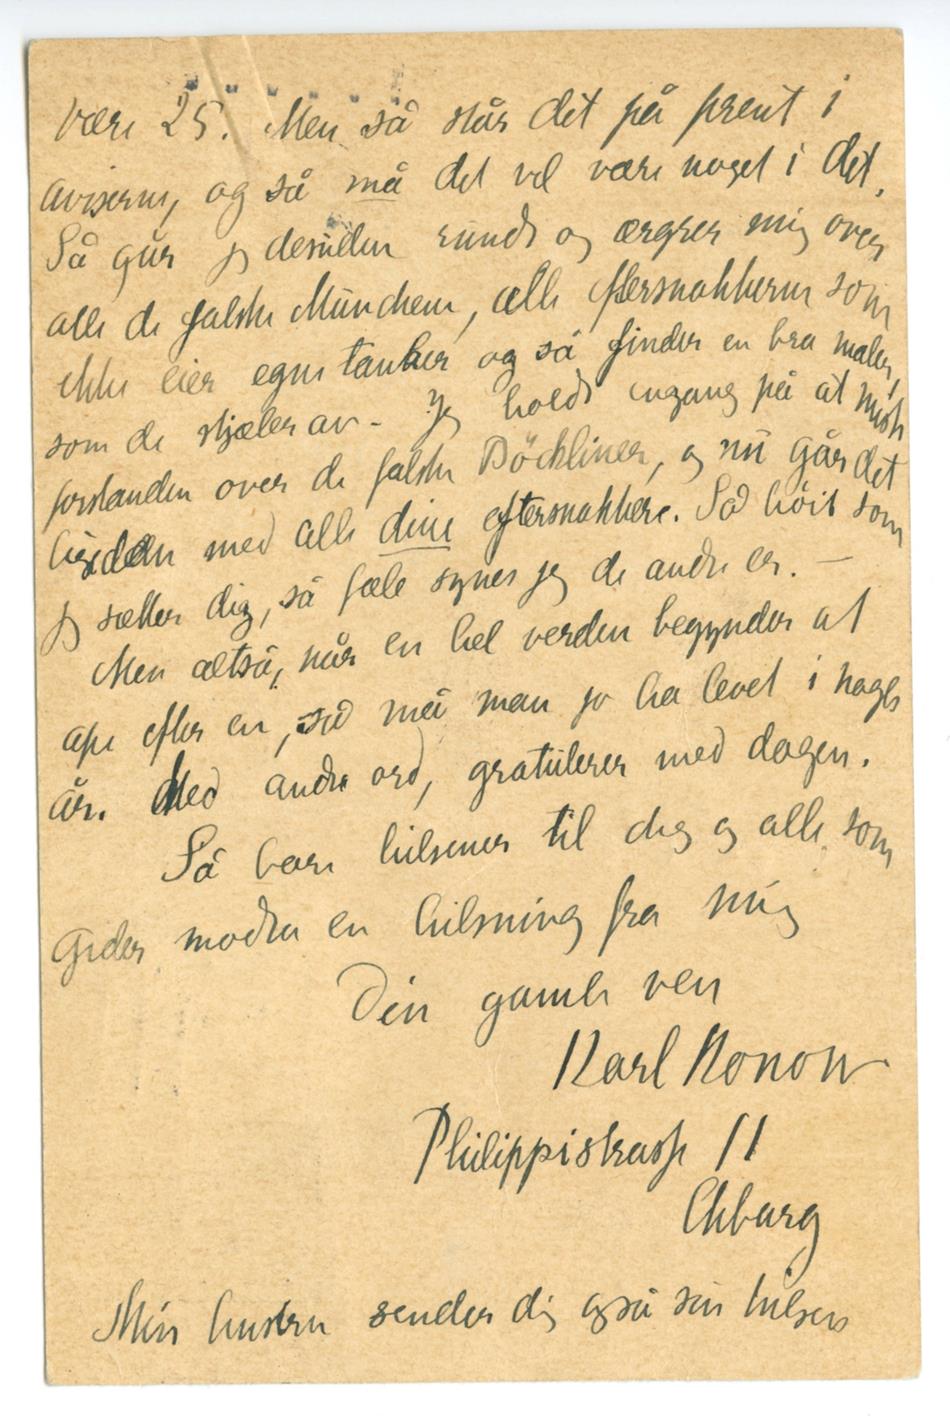 være 25. Men så står det på prent i
aviserne, og så må det vel være noget i det.
Så går jeg desuden rundt og ærgrer mig over
alle de falske Münchere, alle eftersnakkerne som
ikke eier egne tanker og så finder en bra maler,
som de stjæler av - Jeg holdt engang på at miste
forstanden over de falske Böckliner, og nu går det
ligedan med alle dine eftersnakkere. Så høit som
jeg sætter dig, så fæle synes jeg de andre er. —
Men altså, når en hel verden begynder at
ape efter en, så må man jo ha levet i nogle
år. Med andre ord, gratulerer med dagen.
Så bare hilsener til dig og alle som
gider modta en hilsning fra mig
Din gamle ven
Karl Konow
Philippistrasse 11
Chburg
Min hustru sender dig også sin hilsen